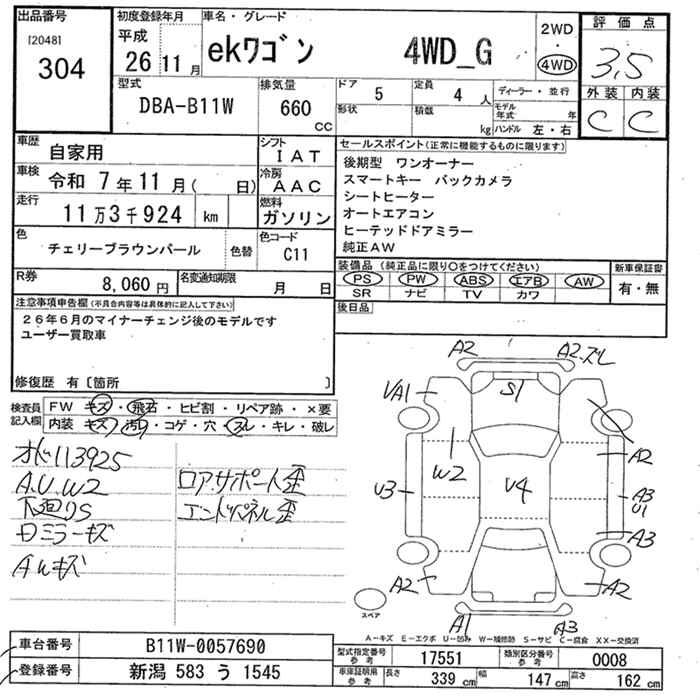 出品番号
[2048]
304
初度登録年月
平成
26年11月
車名・グレード
ekワゴン 4WD_G
2WD
4WD
評価点
3.5
外装 内装
C C
型式
DBA-B11W
排気量
660
cc
ドア 5
定員 4人
形状
積載 kg
ディーラー・並行
モデル年式 年
ハンドル 左・右
車歴
自家用
シフト
IAT
車検
令和 7年11月( 日)
冷房
AAC
走行
11万3千924 km
燃料
ガソリン
色
チェリーブラウンパール
色替
色コード
C11
R券
8,060円
名変通知期限
月 日
セールスポイント(正常に機能するものに限ります)
後期型 ワンオーナー
スマートキー バックカメラ
シートヒーター
オートエアコン
ヒーテッドドアミラー
純正AW
装備品(純正品に限り〇をつけてください)
PS PW ABS エアB AW
SR ナビ TV カワ
新車保証書
有・無
後日品
注意事項申告欄(不具合内容等は具体的に記入して下さい)
26年6月のマイナーチェンジ後のモデルです
ユーザー買取車
修復歴 有〔箇所 〕
検査員記入欄
FW キズ・飛石・ヒビ割・リペア跡・×要
内装 キズ・汚レ・コゲ・穴・スレ・キレ・破レ
113925
A.U.W2
下廻りS
ミラーキズ
AWキズ
ロアサポート歪
エンドパネル歪
A2
A2.ズレ
S1
UA1
A2
W2
U3
U4
A3
U1
A3
A2
A2
A1
A3
スペア
A-キズ E-エクボ U-凹み W-補修跡 S-サビ C-腐食 XX-交換済
車台番号
B11W-0057690
登録番号
新潟 583 う 1545
型式指定番号 参考
17551
類別区分番号 参考
0008
車庫証明用 参考
長さ 339 cm
幅 147 cm
高さ 162 cm